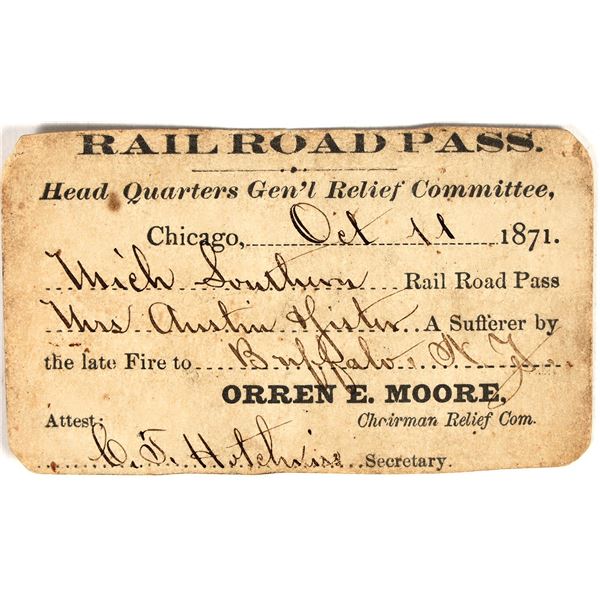 RAIL ROAD PASS.
Head Quarters Gen'l Relief Committee,
Chicago, Oct 11 1871.
Mich Southern Rail Road Pass
Mrs Austin A Sufferer by
the late Fire to Buffalo N. Y.
ORREN E. MOORE,
Attest: Chairman Relief Com.
C. T. Hotchkiss Secretary.